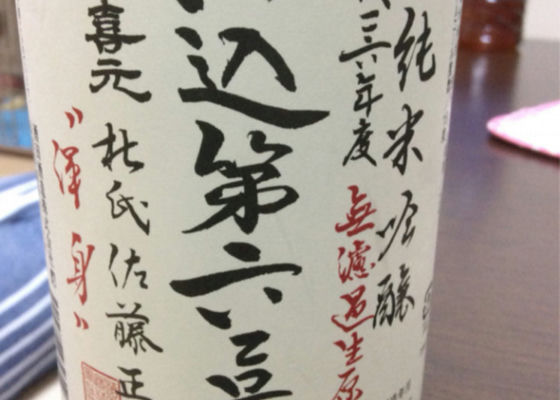 純米吟醸
二六年度
無濾過生原
込第六号
喜元
杜氏佐藤正
〃渾身〃